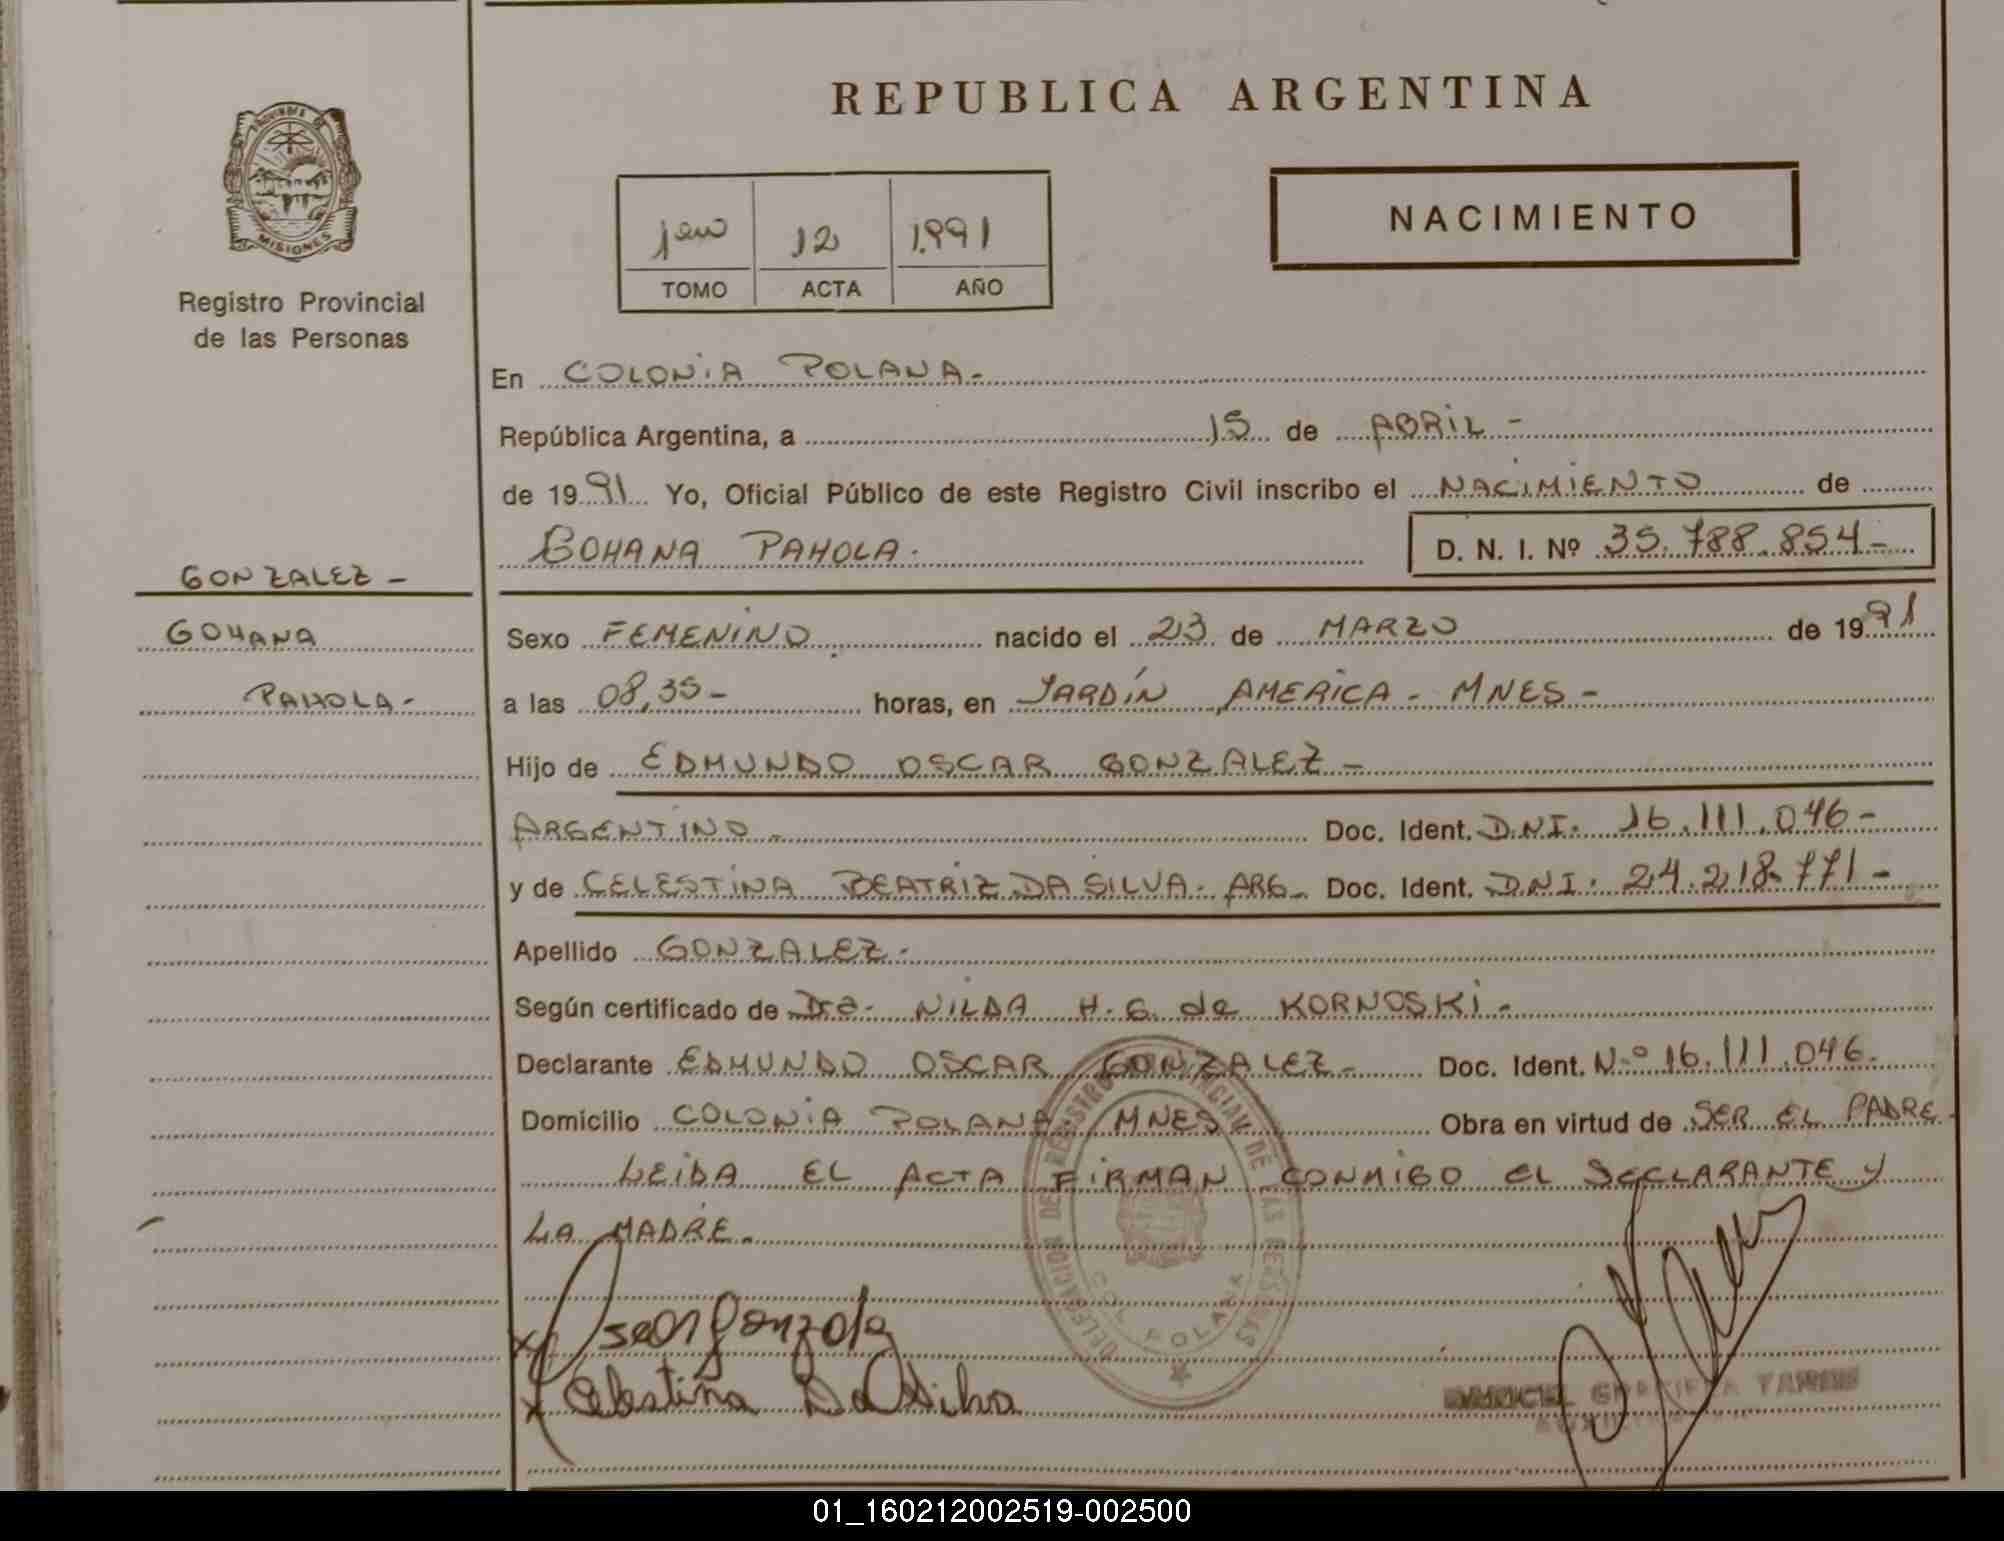 REPUBLICA ARGENTINA
MISIONES
Registro Provincial
de las Personas
12 1.991
TOMO ACTA AÑO
NACIMIENTO
En COLONIA POLANA.-
República Argentina, a 15 de ABRIL -
de 1991 Yo, Oficial Público de este Registro Civil inscribo el NACIMIENTO de
GOHANA PAHOLA. D. N. I. Nº 35.788.854-
GONZALEZ -
GOHANA
PAHOLA.-
Sexo FEMENINO nacido el 23 de MARZO de 1991
a las 08,35- horas, en JARDÍN AMERICA - MNES -
Hijo de EDMUNDO OSCAR GONZALEZ -
ARGENTINO - Doc. Ident. D.N.I. 16.111.046-
y de CELESTINA BEATRIZ DA SILVA. ARG- Doc. Ident. D.N.I. 24.218.771-
Apellido GONZALEZ.
Según certificado de Dra. NILDA H. G. de KORNOSKI -
Declarante EDMUNDO OSCAR GONZALEZ - Doc. Ident. N.º 16.111.046.
Domicilio COLONIA POLANA MNES Obra en virtud de SER EL PADRE.
LEIDA EL ACTA FIRMAN CONMIGO EL DECLARANTE y
LA MADRE.
DELEGACION DEL REGISTRO PROVINCIAL DE LAS PERSONAS
COL. POLANA
x Oscar Gonzalez
x Celestina Da Silva
01_160212002519-002500